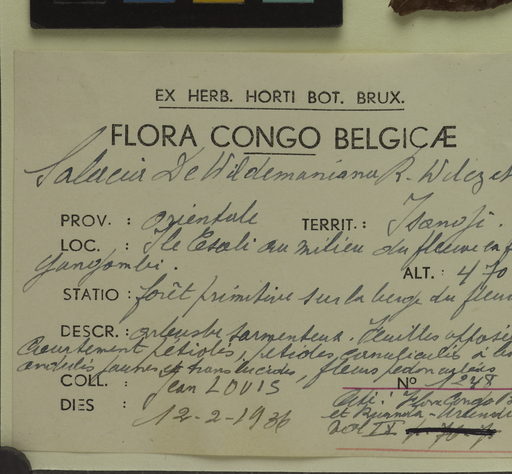 EX HERB. HORTI BOT. BRUX.
FLORA CONGO BELGICÆ
Salacia De Wildemaniana R. Wilczek
PROV. : Orientale TERRIT. : Isangi.
LOC. : Ile Esali au milieu du fleuve en f
Yangambi. ALT. : 470
STATIO : forêt primitive sur la berge du fleuv
DESCR. : arbuste sarmenteux. Feuilles opposé
courtement pétiolés, pétioles canaliculés à les
jaunes et translucides, fleurs pedonculées
COLL. : Jean LOUIS No 1278
DIES : 12-2-1936
Flore Congo B
et Ruanda-Urundi
vol IX